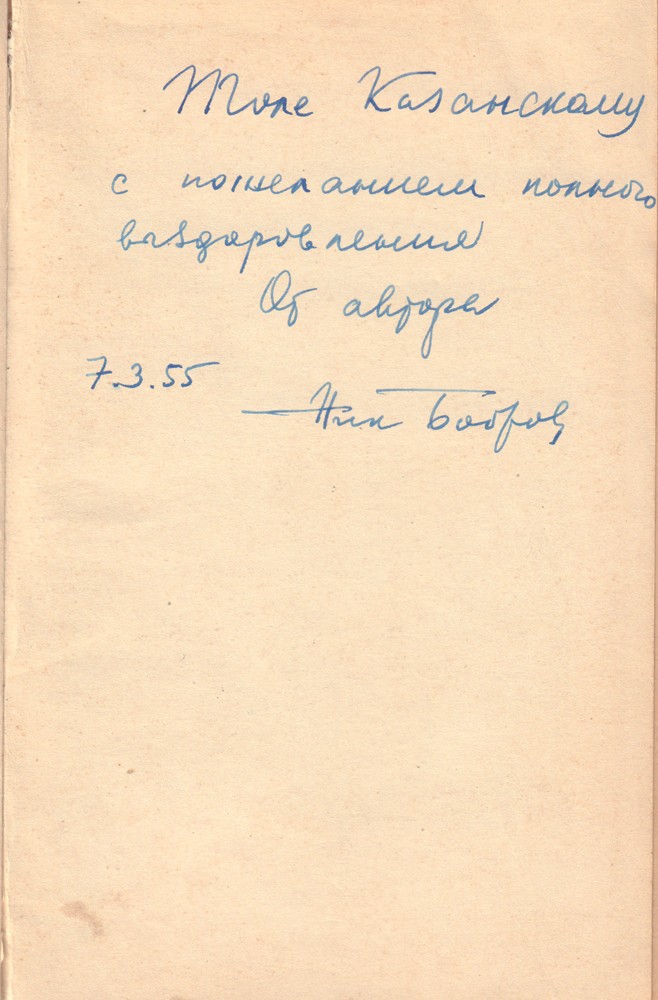 Толе Казанскому
с пожеланием полного
выздоровления
От автора
7.3.55
Ник Бобров